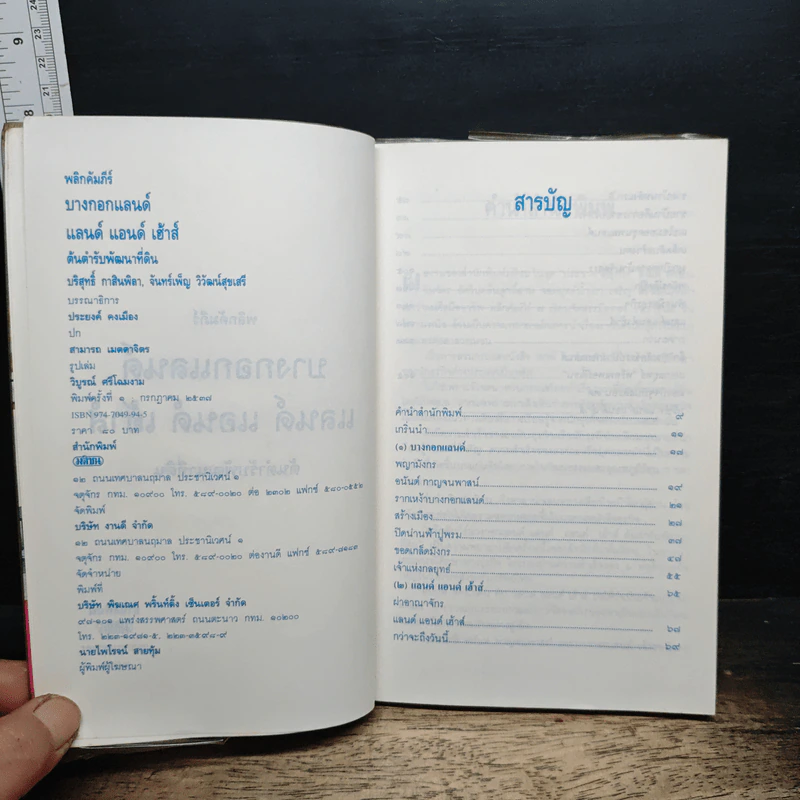 พลิกคัมภีร์
บางกอกแลนด์
แลนด์ แอนด์ เฮ้าส์
ต้นตำรับพัฒนาที่ดิน
บริสุทธิ์ กาสินพิลา, จันทร์เพ็ญ วิวัฒน์สุขเสรี
บรรณาธิการ
ประยงค์ คงเมือง
ปก
สามารถ เมตตาจิตร
รูปเล่ม
วิบูรณ์ ศรีโฉมงาม
พิมพ์ครั้งที่ ๑ กรกฎาคม ๒๕๓๗
ISBN 974-7049-94-5
ราคา ๘๐ บาท
สำนักพิมพ์
มติชน
๑๒ ถนนเทศบาลนฤมาล ประชานิเวศน์ ๑
จตุจักร กทม. ๑๐๙๐๐ โทร. ๕๘๙-๐๐๒๐ ต่อ ๒๓๐๒ แฟกซ์ ๕๘๐-๐๕๕๒
จัดพิมพ์
บริษัท งานดี จำกัด
๑๒ ถนนเทศบาลนฤมาล ประชานิเวศน์ ๑
จตุจักร กทม. ๑๐๙๐๐ โทร. ๕๘๙-๐๐๒๐ ต่องานดี แฟกซ์
จัดจำหน่าย
พิมพ์ที่
บริษัท พิฆเณศ พริ้นท์ติ้ง เซ็นเตอร์ จำกัด
๙๘-๑๐๑ แพร่งสรรพศาสตร์ ถนนตะนาว กทม. ๑๐๒๐๐
โทร. ๒๒๓-๑๙๘๑-๕, ๒๒๓-๓๕๙๘-๙
นายไพโรจน์ สายทุ้ม
ผู้พิมพ์ผู้โฆษณา
สารบัญ
คำนำสำนักพิมพ์ ๙
เกริ่นนำ ๑๑
(๑) บางกอกแลนด์ ๑๗
พญามังกร
อนันต์ กาญจนพาสน์ ๑๙
รากเหง้าบางกอกแลนด์ ๒๑
สร้างเมือง ๒๗
ปัดน่านฟ้าปูพรม ๓๗
ขอดเกล็ดมังกร ๔๘
เจ้าแห่งกลยุทธ์ ๕๕
(๒) แลนด์ แอนด์ เฮ้าส์ ๖๕
ผ่าอาณาจักร
แลนด์ แอนด์ เฮ้าส์ ๖๘
กว่าจะถึงวันนี้ ๖๙